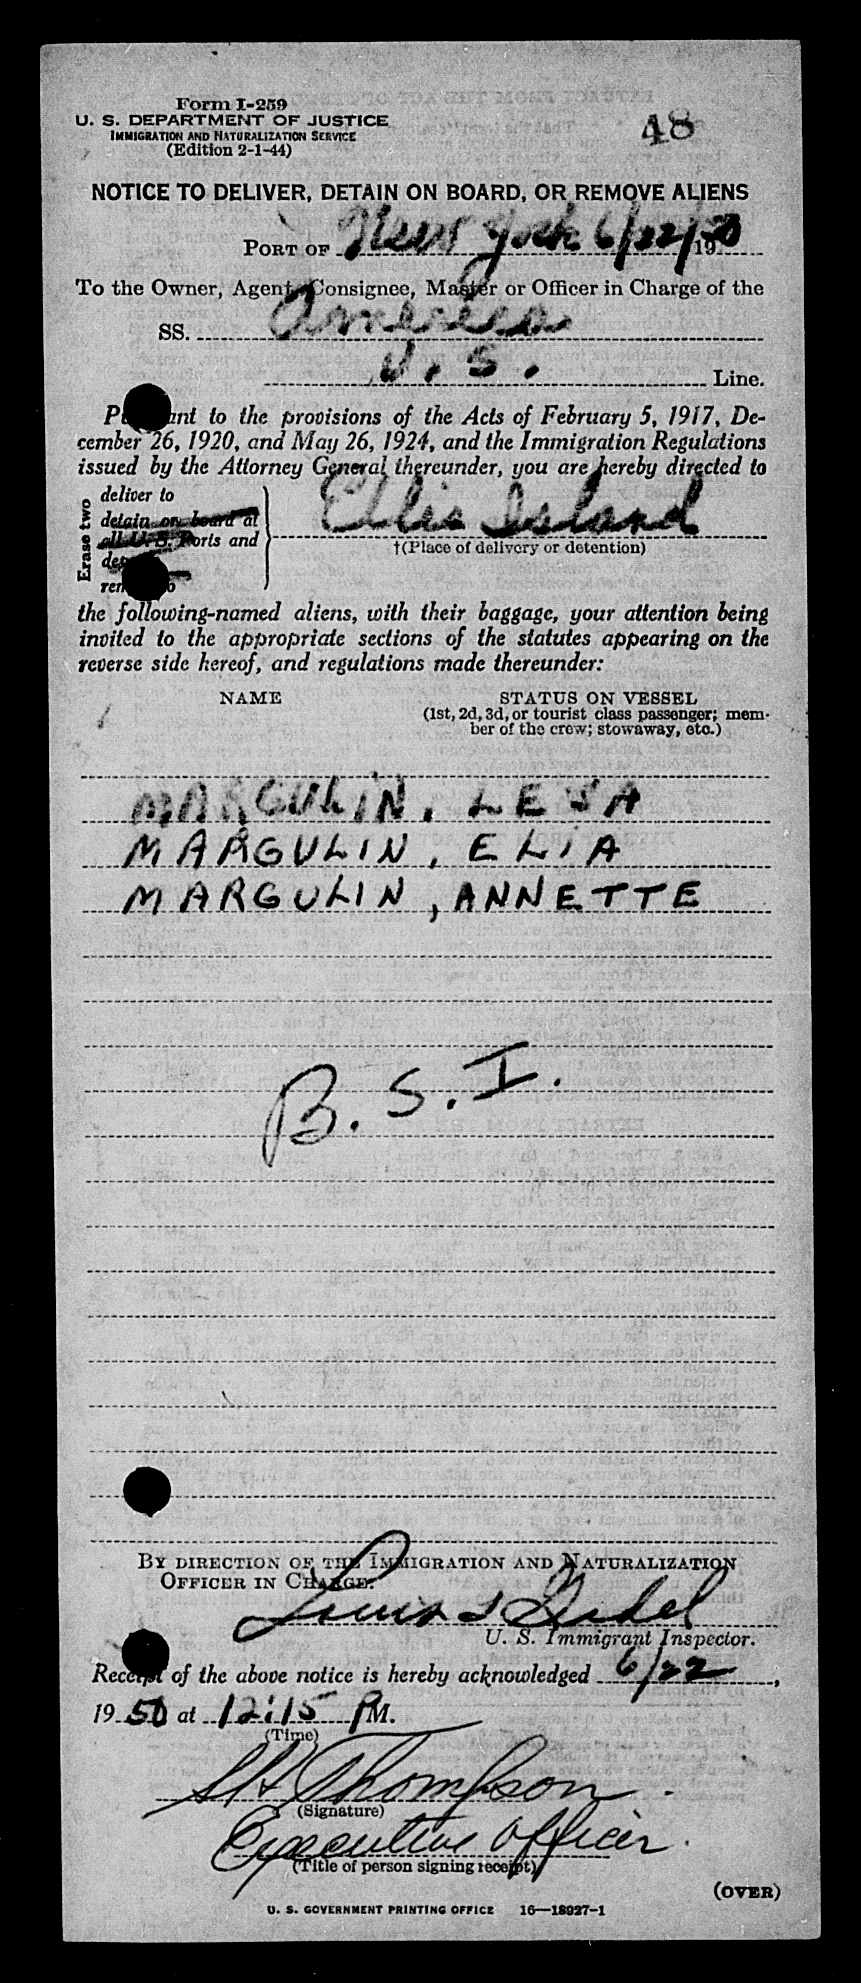 Form I-259
U. S. DEPARTMENT OF JUSTICE
IMMIGRATION AND NATURALIZATION SERVICE
(Edition 2-1-44)
48
NOTICE TO DELIVER, DETAIN ON BOARD, OR REMOVE ALIENS
PORT OF New York 6/22/1950
To the Owner, Agent, Consignee, Master or Officer in Charge of the
SS. America
U. S. Line.
Pursuant to the provisions of the Acts of February 5, 1917, De-
cember 26, 1920, and May 26, 1924, and the Immigration Regulations
issued by the Attorney General thereunder, you are hereby directed to
Erase two
deliver to
detain on board at
all U. S. Ports and
Ellis Island
†(Place of delivery or detention)
the following-named aliens, with their baggage, your attention being
invited to the appropriate sections of the statutes appearing on the
reverse side hereof, and regulations made thereunder:
NAME STATUS ON VESSEL
(1st, 2d, 3d, or tourist class passenger; mem-
ber of the crew; stowaway, etc.)
MARGULIN, LEJA
MARGULIN, ELIA
MARGULIN, ANNETTE
B. S. I.
BY DIRECTION OF THE IMMIGRATION AND NATURALIZATION
OFFICER IN CHARGE:
Louis
U. S. Immigrant Inspector.
Receipt of the above notice is hereby acknowledged 6/22,
1950 at 12:15 PM.
(Time)
Thompson
(Signature)
Executive Officer.
(Title of person signing receipt)
(OVER)
U. S. GOVERNMENT PRINTING OFFICE 16—18927-1